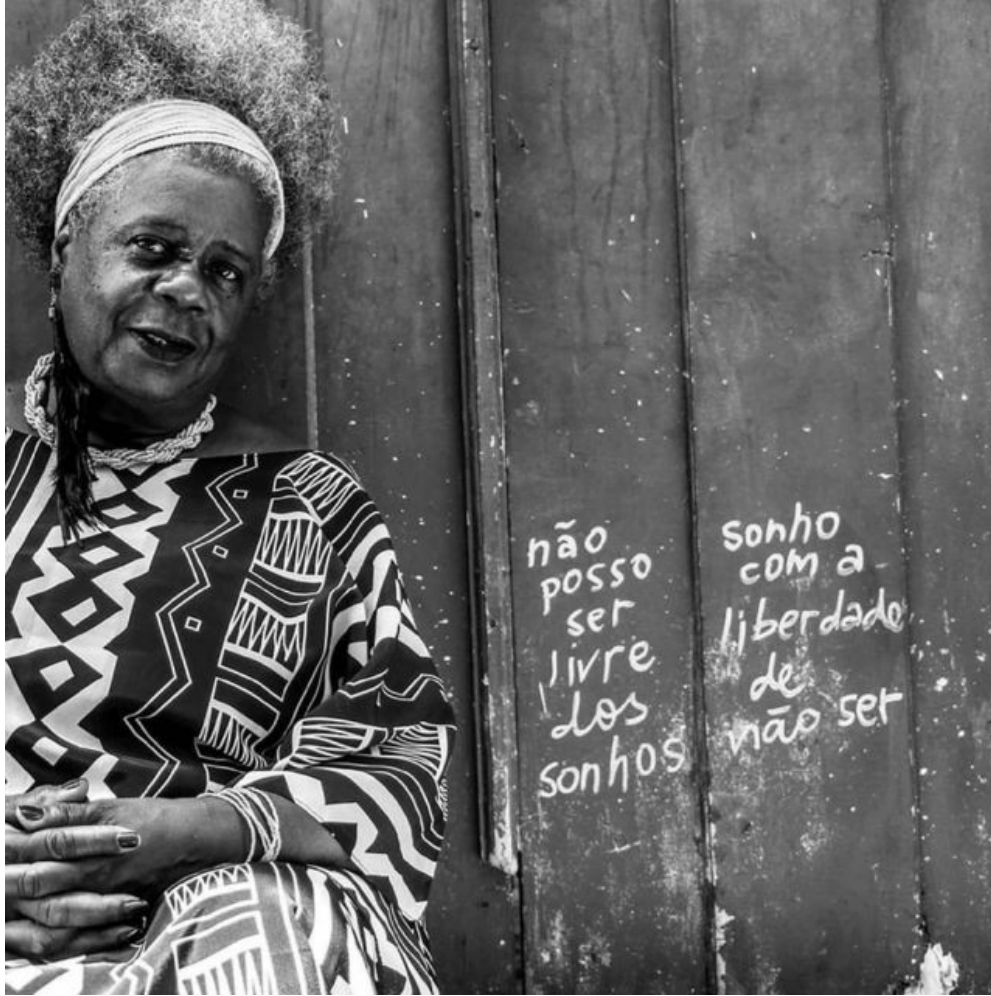 não
posso
ser
livre
dos
sonhos
sonho
com a
liberdade
de
não ser